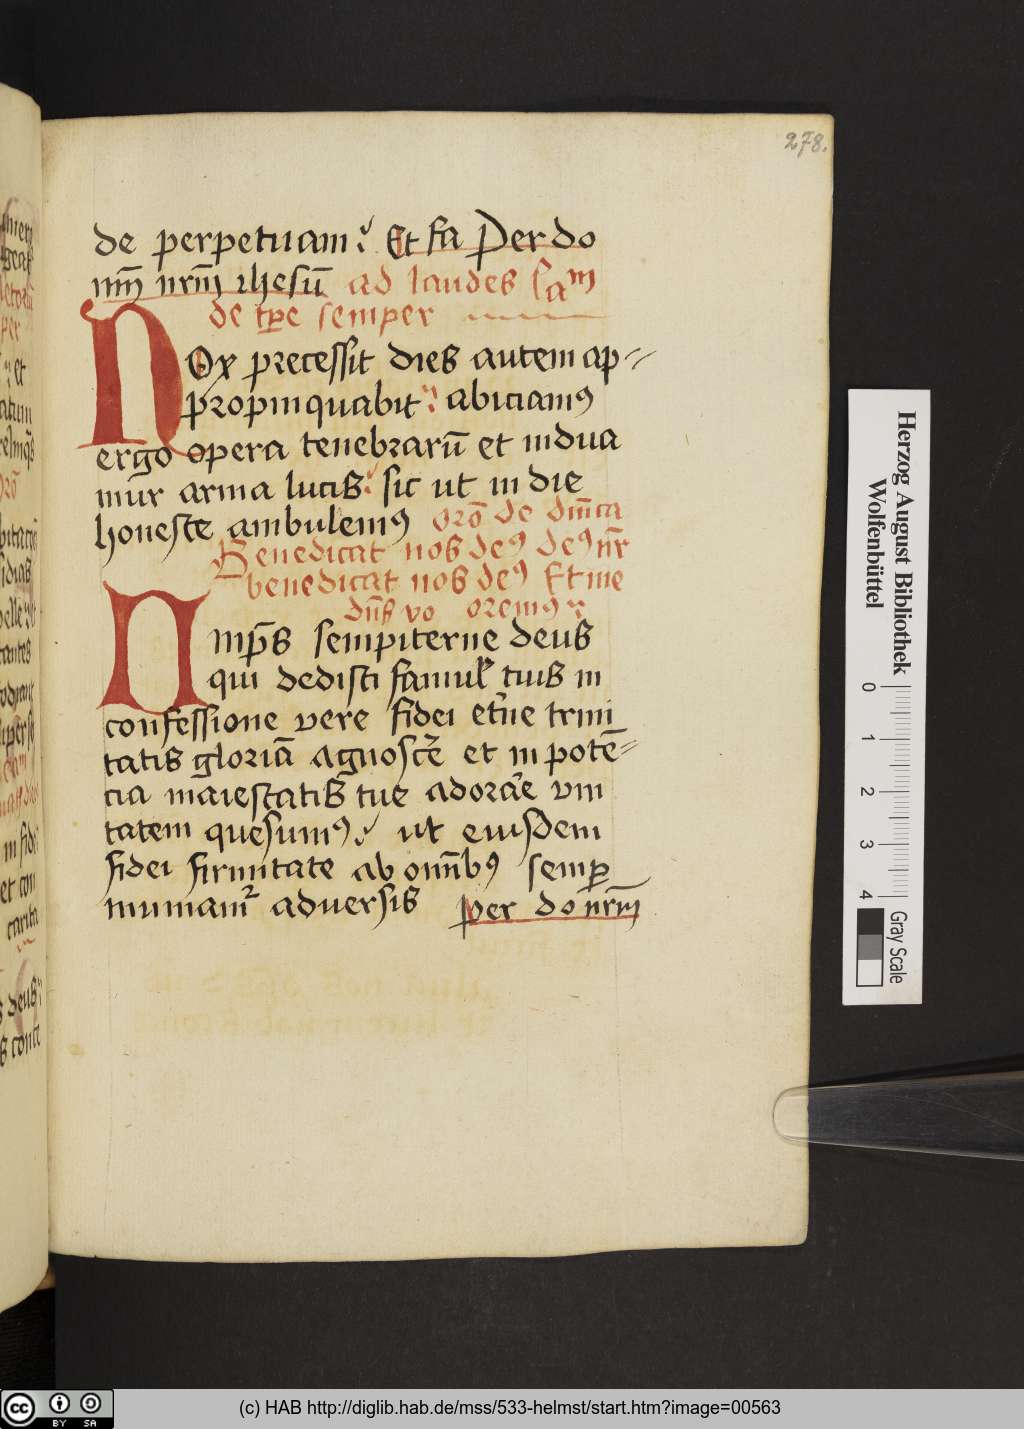 278.
de perpetuam Et fa Per do
mm̄ nr̄m ihesū ad laudes Cam
de tpe semper
Nox precessit dies autem ap=
propinquabit abiciamꝰ
ergo opera tenebrarū et indua
mur arma lucis sic ut in die
honeste ambulemꝰ orō de dn̄ica
Benedicat nos deꝰ deꝰ nr̄
benedicat nos deꝰ Et me
dn̄s vo oremꝰ
Omps̄ sempiterne deus
qui dedisti famul tuis in
confessione vere fidei et̄ne trini
tatis gloriā agnosce̅ et in potē=
cia maiestatis tue adorar̄e vni
tatem quesumꝰ ut eiusdem
fidei firmitate ab om̄ibꝰ semꝑ
muniam̄ adversis per do nr̄m
Herzog August Bibliothek
Wolfenbüttel
0 1 2 3 4
Gray Scale
BY SA
(c) HAB http://diglib.hab.de/mss/533-helmst/start.htm?image=00563